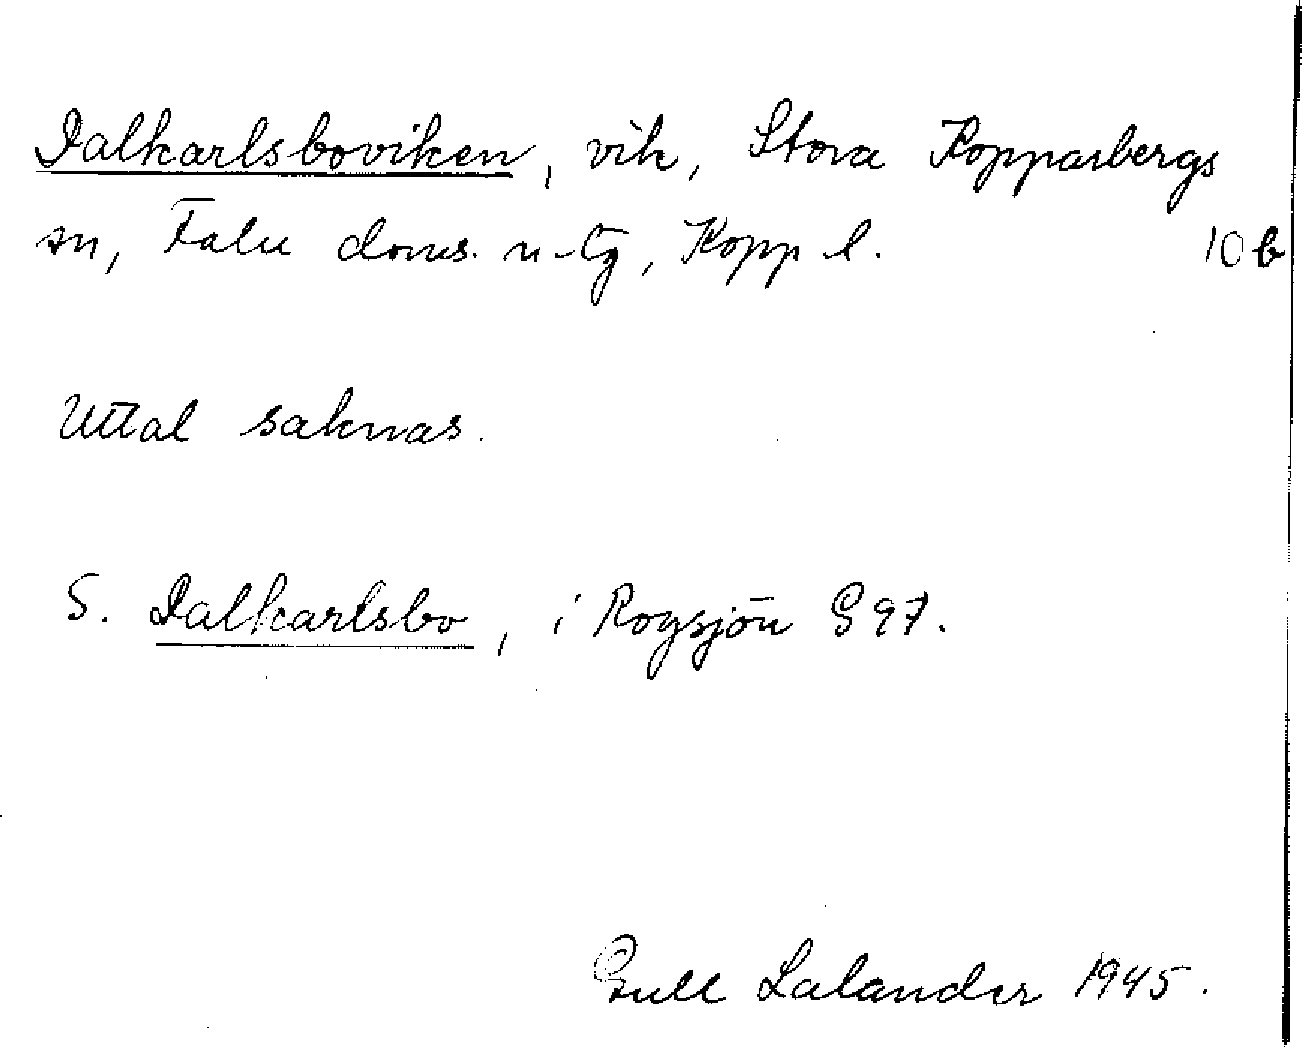 Dalkarlsboviken, vik, Stora Kopparbergs
sn, Falu doms. n-tg, Kopp l. 10 b
Uttal saknas.
S. Dalkarlsbo, i Rogsjön G 97.
Gull Lalander 1945.